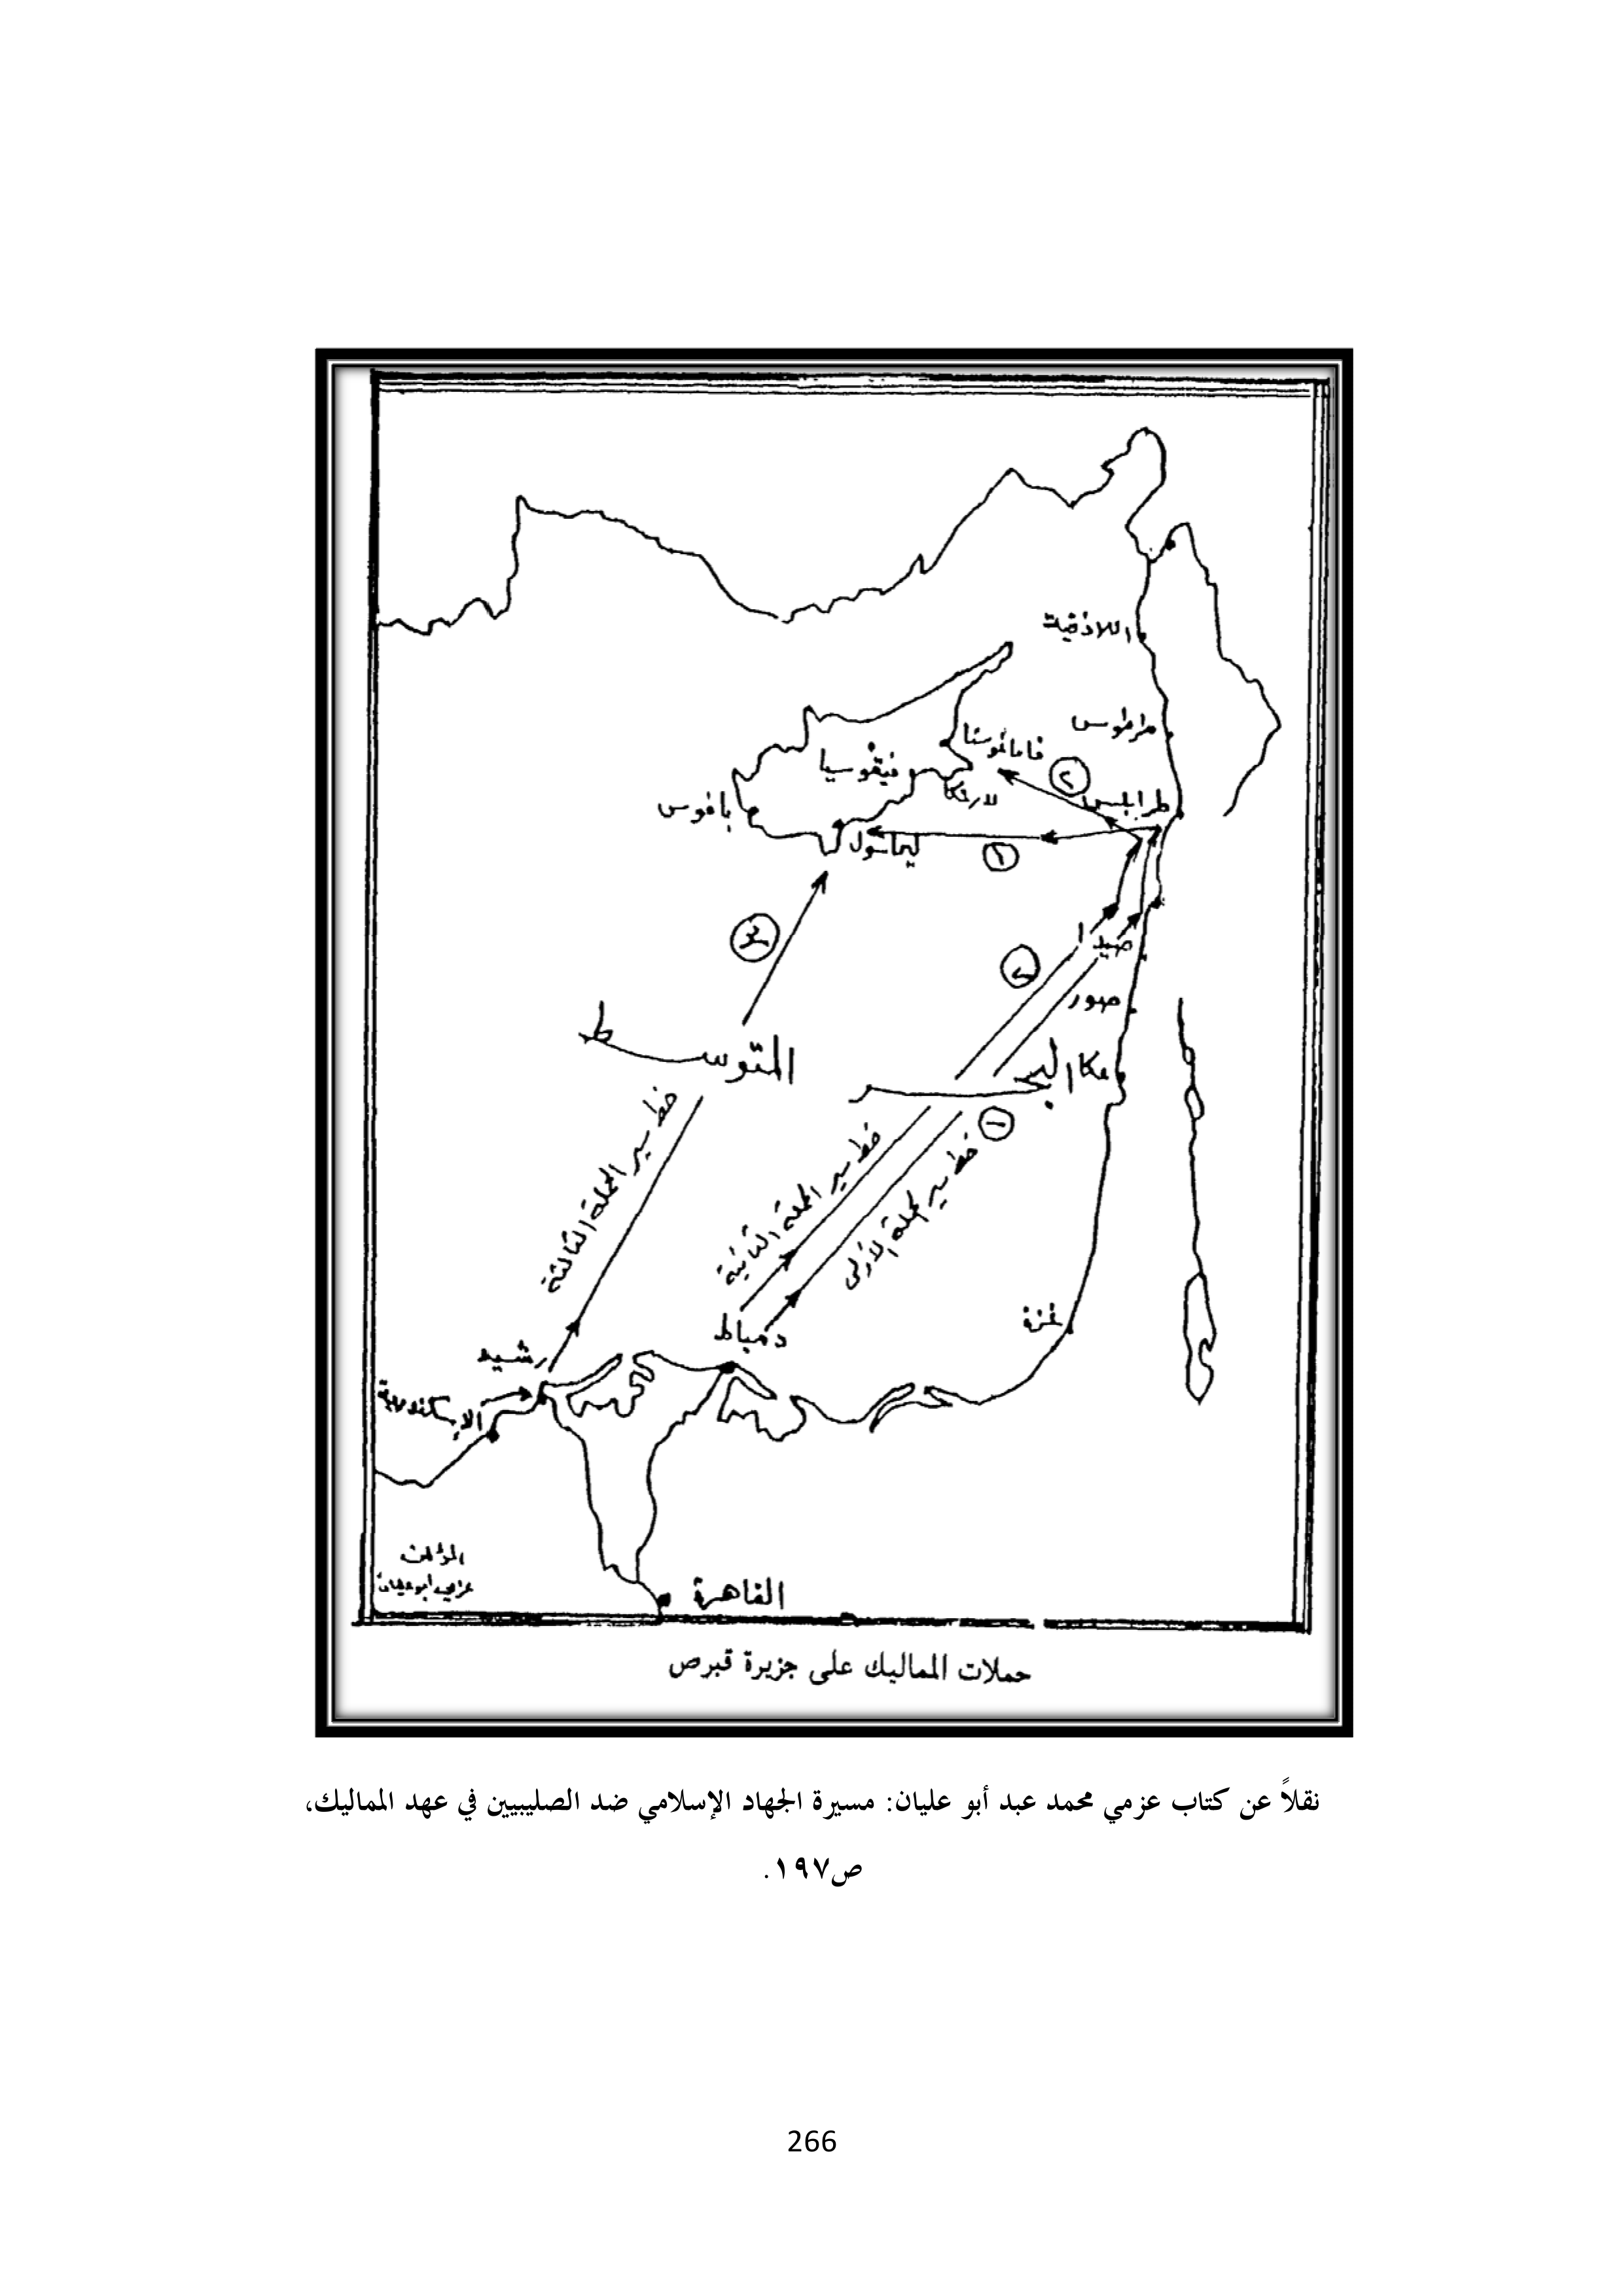 اللاذقية
طرطوس
فاماغوستا
نيقوسيا
٢
لارنكا
طرابلس
بافوس
ليماسول
١
٣
صيدا
٢
صور
المتوسط
عكا
البحر
١
خط سير الحملة الثالثة
خط سير الحملة الثانية
خط سير الحملة الأولى
غزة
دمياط
رشيد
الإسكندرية
المؤلف
عزمي أبو عليان
القاهرة
حملات المماليك على جزيرة قبرص
نقلاً عن كتاب عزمي محمد عبد أبو عليان: مسيرة الجهاد الإسلامي ضد الصليبيين في عهد المماليك،
ص١٩٧.
266